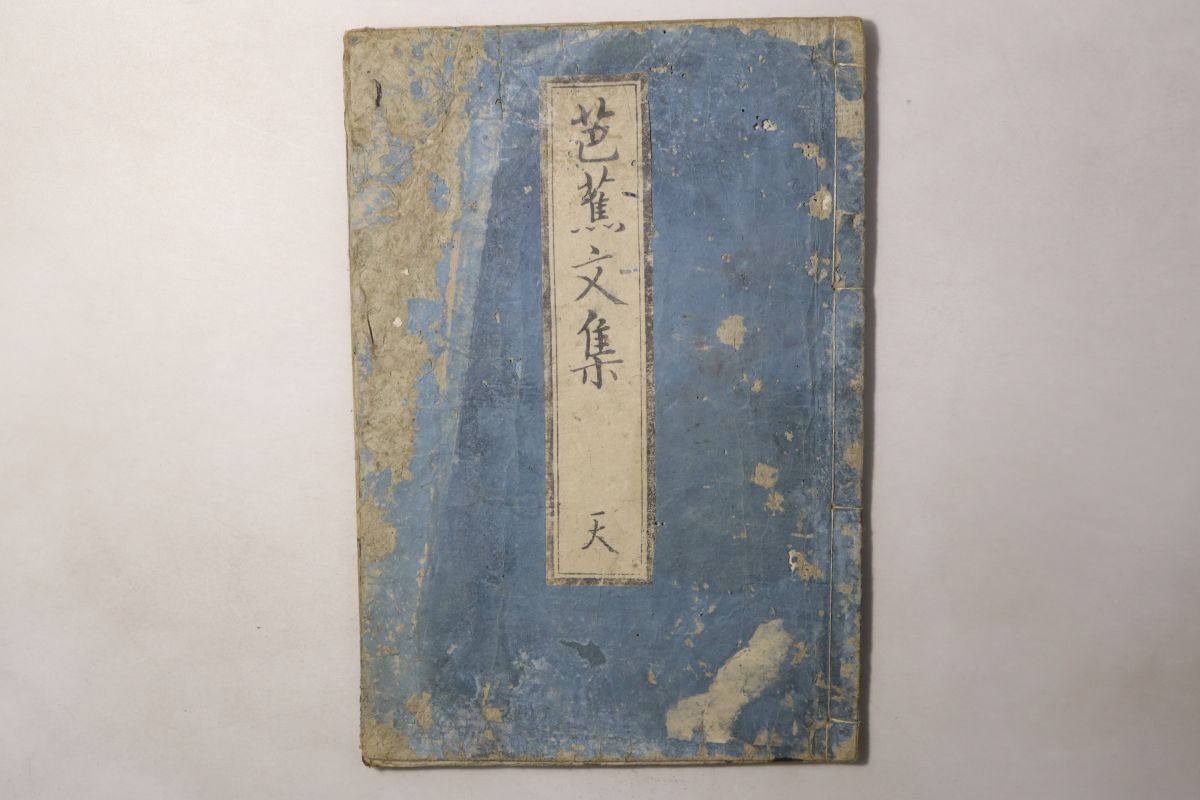 芭蕉文集
天